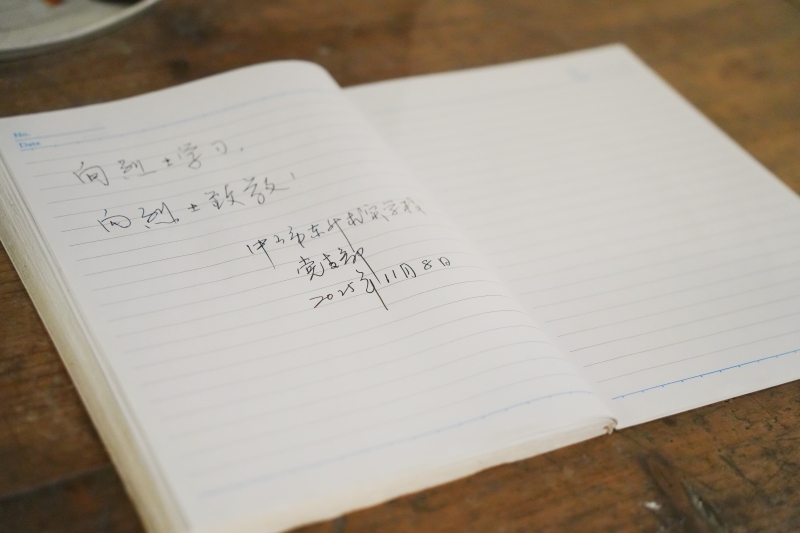 No.
Date
向烈士学习,
向烈士致敬!
中山市东升机关学校
党支部
2025年11月8日